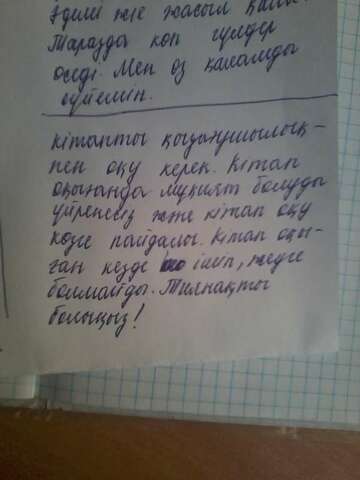 әдемі және жасыл қала.
Таразда көп гүлдер
өседі. Мен өз қаламды
сүйемін.
Кітапты қызығушылық-
пен оқу керек. Кітап
оқығанда мұқият болуды
үйренсіз және кітап оқу
көзге пайдалы. Кітап оқы-
ған кезде ішіп, жеуге
болмайды. Тиянақты
болыңыз!